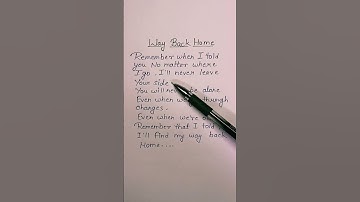 Way Back Home
Remember when I told
you No matter where
I go, I'll never leave
Your side
You will ne be alone
Even when we through
changes.
Even when we're
Remember that I told
I'll find my way back
Home....